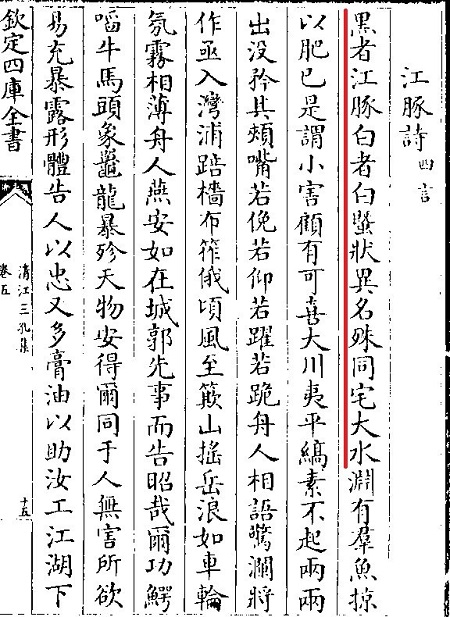 江豚詩 四言
黒者江豚白者白鱀狀異名殊同宅大水淵有羣魚掠
以肥已是謂小害顧有可喜大川夷平縞素不起兩兩
出没矜其頰嘴若俛若仰若躍若跪舟人相語驚瀾將
作亟入灣浦踣檣布笮俄頃風至簸山搖岳浪如車輪
氛霧相薄舟人燕安如在城郭先事而告昭哉爾功鰐
牛馬頭象鼉龍暴殄天物安得爾同于人無害所欲
易充暴露形體告人以忠又多膏油以助汝工江湖下
欽定四庫全書
清江三孔集
卷五
十五